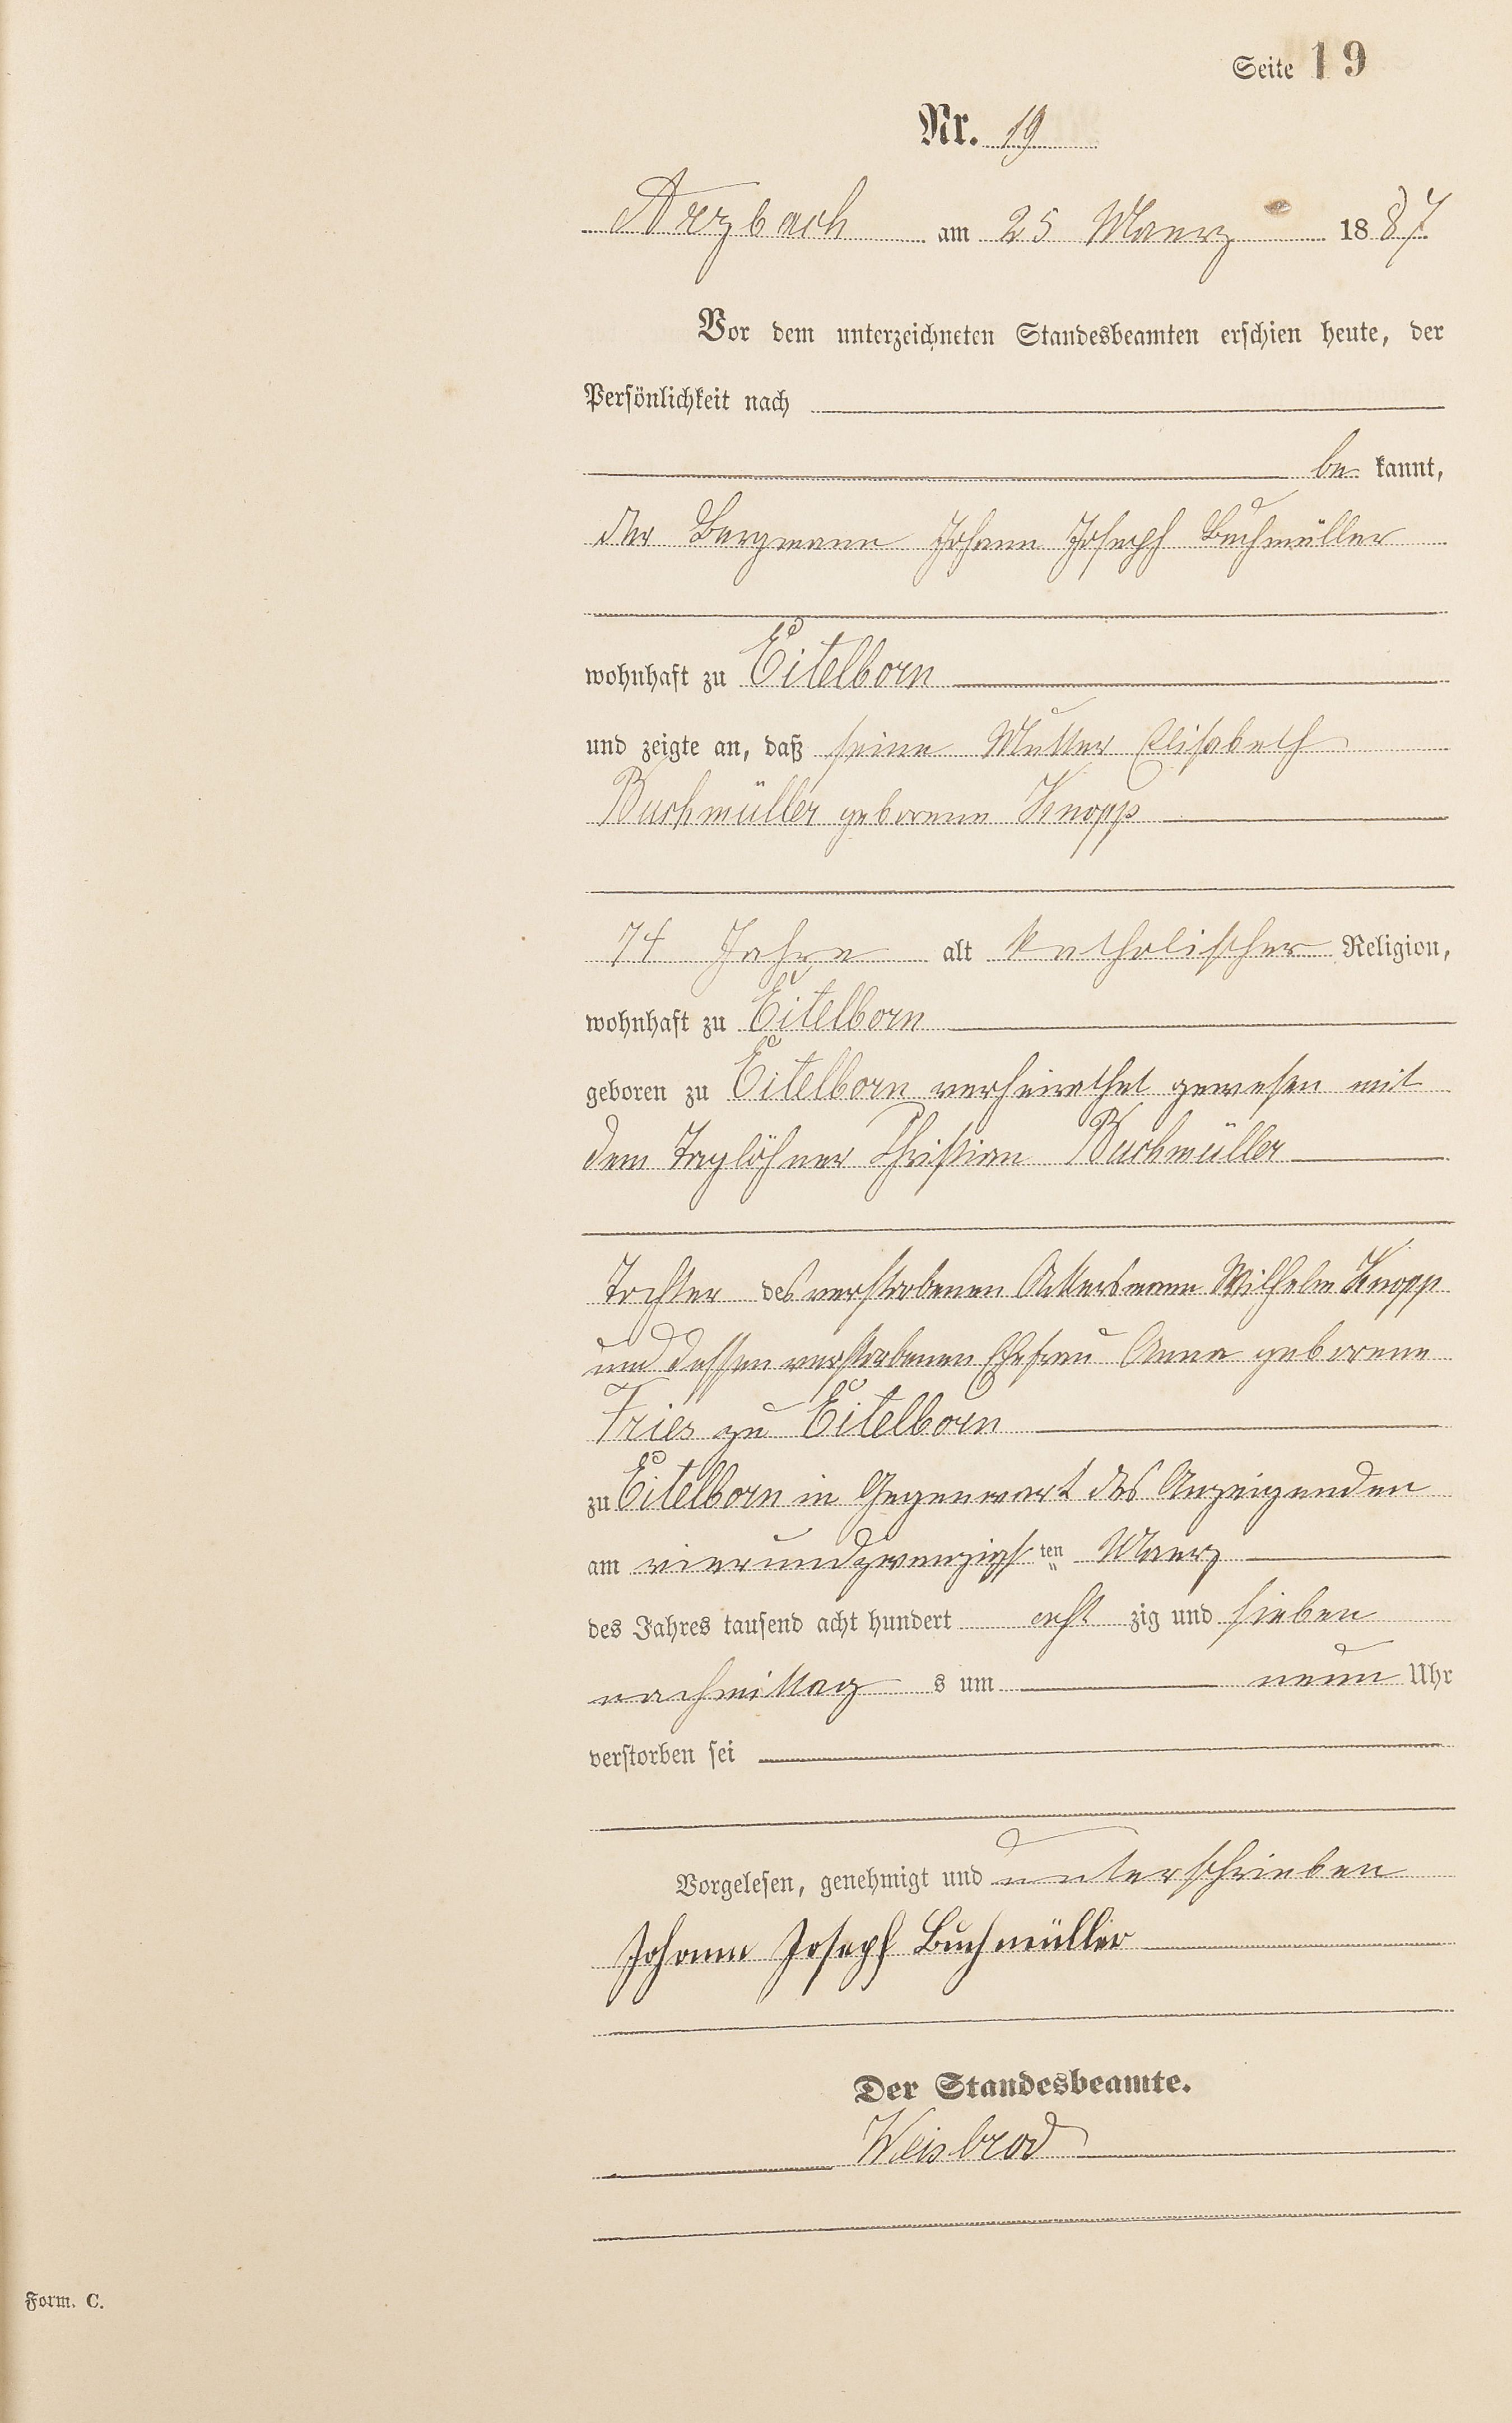 Seite 19
Nr. 19
Arzbach am 25 Maerz 1887
Vor dem unterzeichneten Standesbeamten erschien heute, der
Persönlichkeit nach
be kannt,
der Bergmann Johann Joseph Buchmüller
wohnhaft zu Eitelborn
und zeigte an, daß seine Mutter Elisabeth
Buchmüller geborene Knopp
74 Jahre alt katholischer Religion,
wohnhaft zu Eitelborn
geboren zu Eitelborn verheirathet gewesen mit
dem Taglöhner Christian Buchmüller
Tochter des verstorbenen Ackersmann Wilhelm Knopp
und dessen verstorbenen Ehefrau Anna geborene
Fries zu Eitelborn
zu Eitelborn in Gegenwart des Anzeigenden
am vierundzwanzigsten Maerz
des Jahres tausend acht hundert acht zig und sieben
nachmittag s um neun Uhr
verstorben sei
Vorgelesen, genehmigt und unterschrieben
Johann Joseph Buchmüller
Der Standesbeamte.
Weisbrod
Form. C.